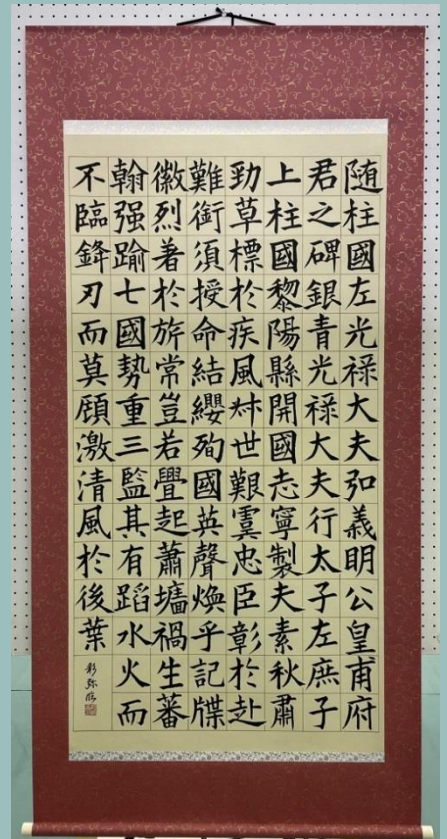 随柱國左光禄大夫弘義明公皇甫府
君之碑銀青光禄大夫行太子左庶子
上柱國黎陽縣開國志寧製夫素秋肅
勁草標於疾風叔世艱虞忠臣彰於赴
難銜須授命結纓殉國英聲煥乎記牒
徽烈著於旂常豈若釁起蕭墻禍生蕃
翰强踰七國勢重三監其有蹈水火而
不臨鋒刃而莫顧激清風於後葉